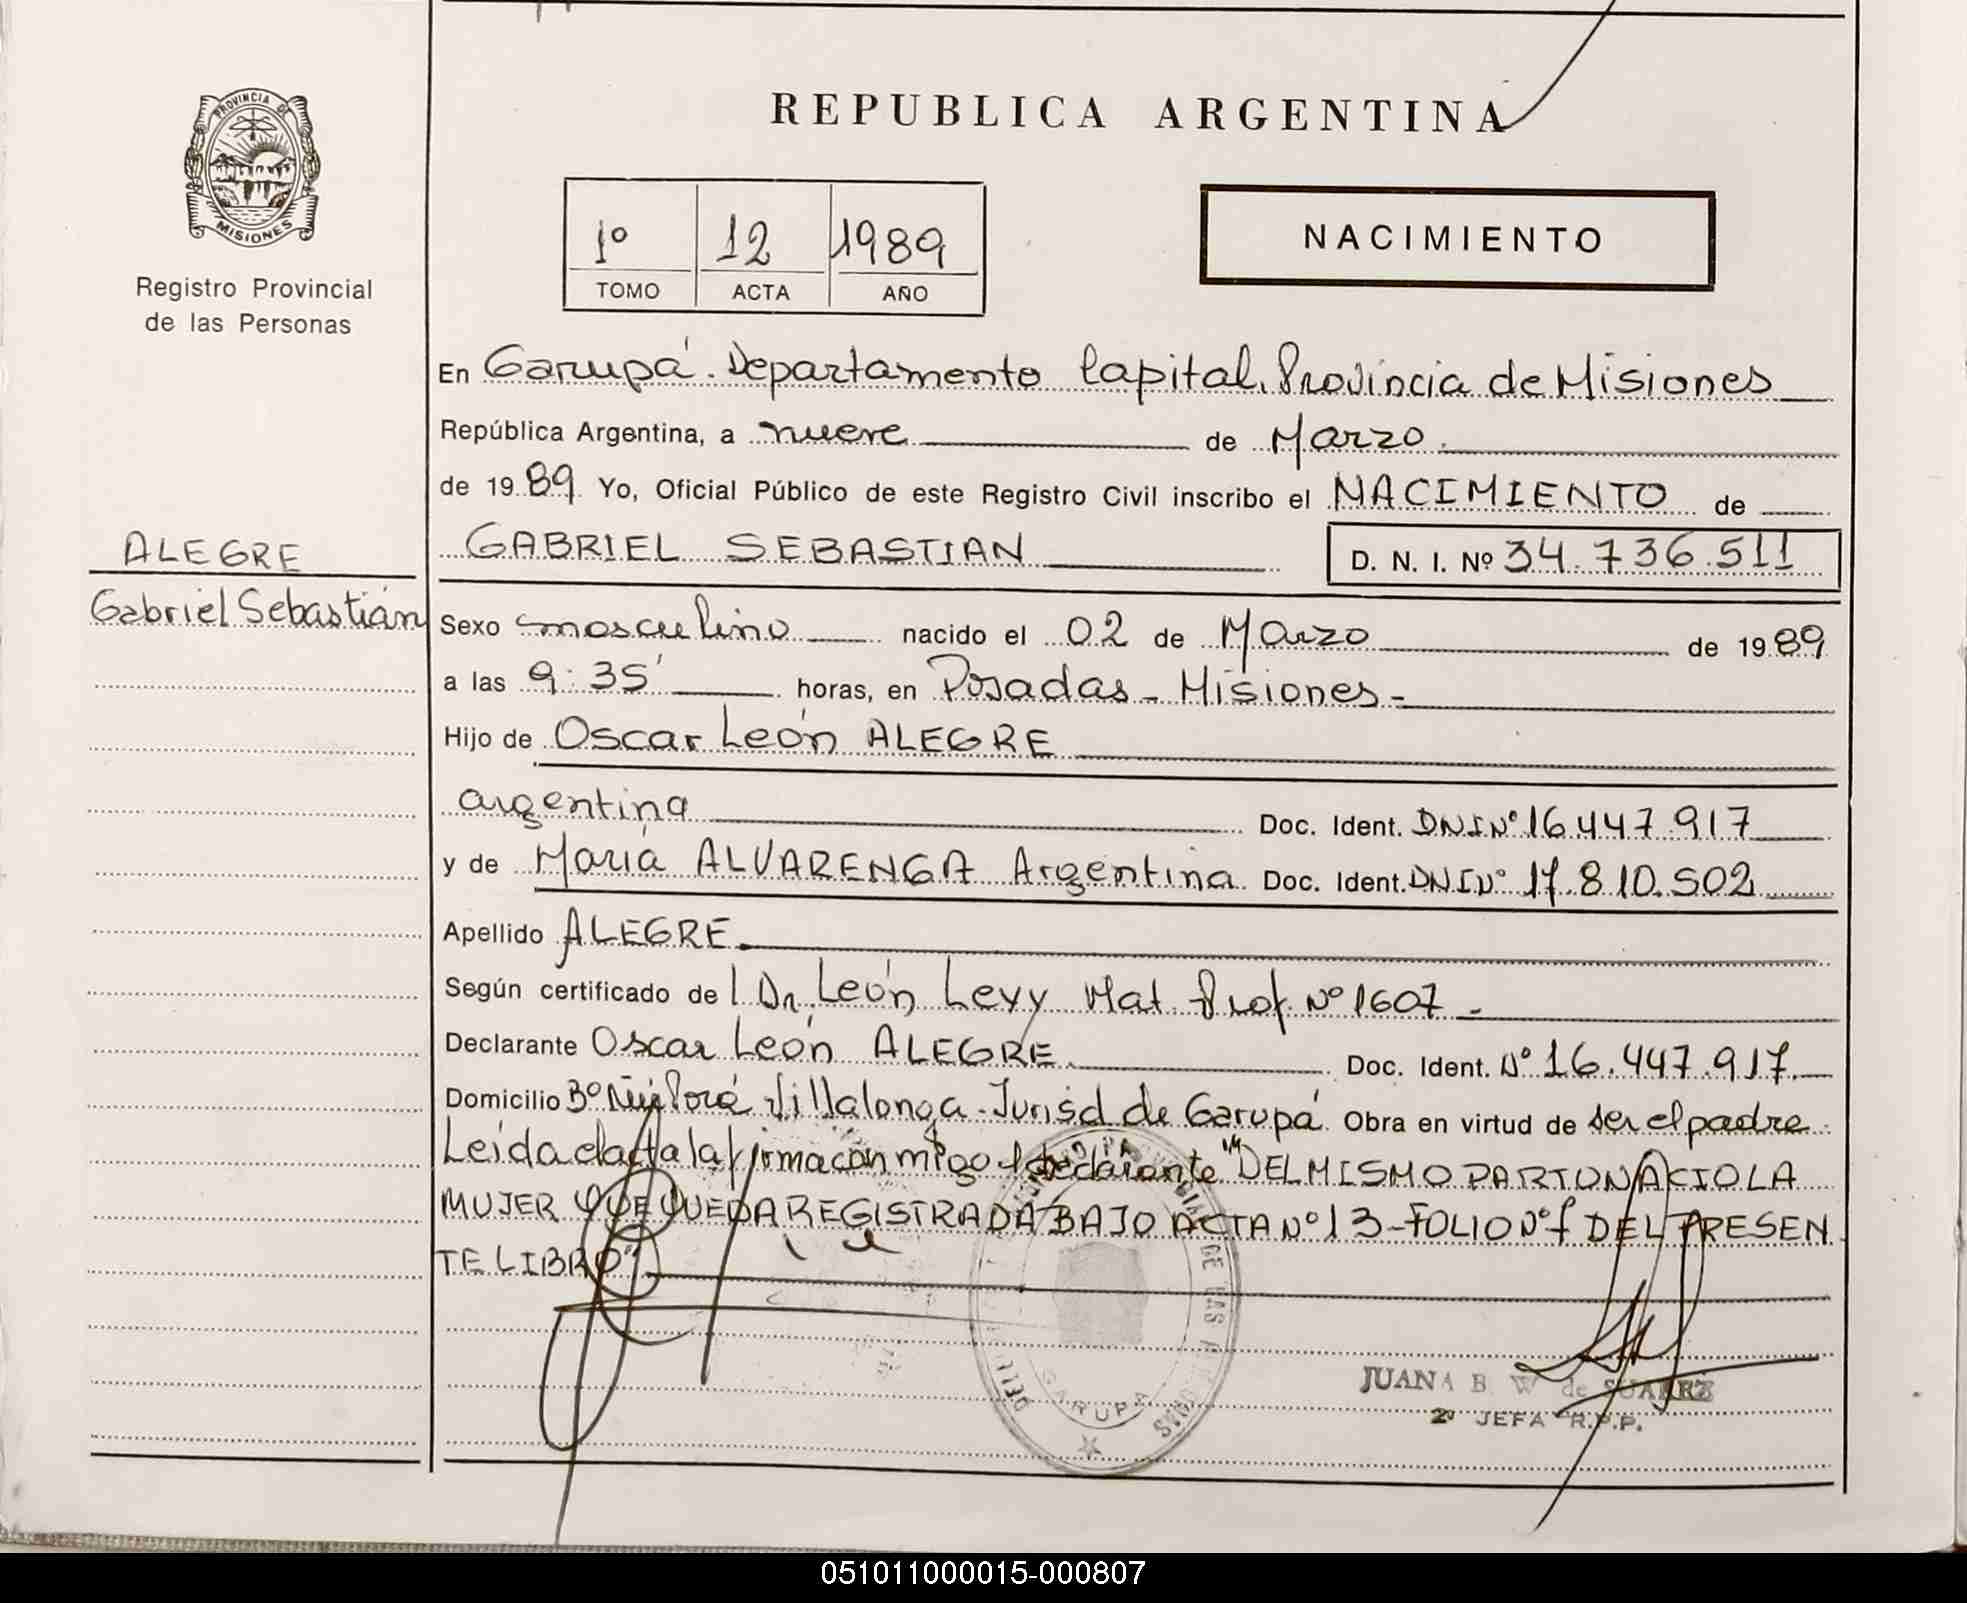 PROVINCIA DE
MISIONES
Registro Provincial
de las Personas
REPUBLICA ARGENTINA
1º 12 1989
TOMO ACTA AÑO
NACIMIENTO
En Garupá. Departamento Capital. Provincia de Misiones
República Argentina, a nueve de Marzo.
de 1989 Yo, Oficial Público de este Registro Civil inscribo el NACIMIENTO de
ALEGRE
Gabriel Sebastián
GABRIEL SEBASTIAN D. N. I. Nº 34.736.511
Sexo masculino nacido el 02 de Marzo de 1989
a las 9:35' horas, en Posadas - Misiones -
Hijo de Oscar León ALEGRE
argentina Doc. Ident. DNI Nº 16.447.917
y de María ALVARENGA Argentina Doc. Ident. DNI Nº 17.810.502
Apellido ALEGRE
Según certificado del Dr. León Levy Mat. Prof. Nº 1607 -
Declarante Oscar León ALEGRE Doc. Ident. Nº 16.447.917.
Domicilio Bº Ñu Porá Villalonga - Jurisd de Garupá Obra en virtud de ser el padre.
Leida el acta la firma conmigo el declarante "DEL MISMO PARTO NACIO LA
MUJER QUE QUEDA REGISTRADA BAJO ACTA Nº 13 - FOLIO Nº DEL PRESEN
TE LIBRO"
DE LAS
GARUPA
JUANA B. W. de SUAREZ
2º JEFA R.P.P.
051011000015-000807